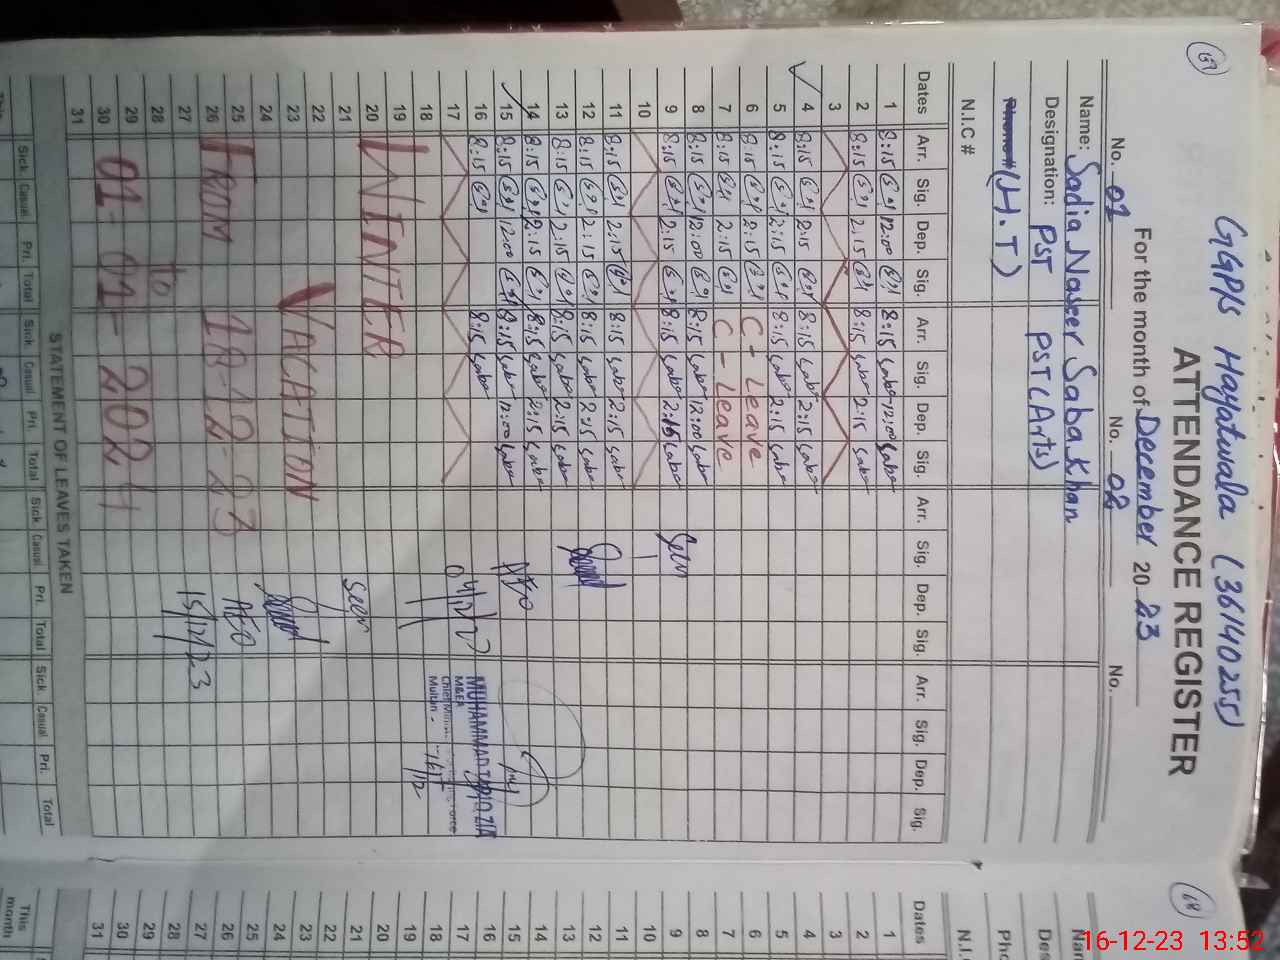 167
GGPS Hayatwala (36140255)
ATTENDANCE REGISTER
For the month of December 2023
No. 01 No. 02 No.
Name: Sadia Naseer Saba Khan
Designation: PST PST (Arts)
Phone# (H.T)
N.I.C#
Dates Arr. Sig. Dep. Sig. Arr. Sig. Dep. Sig. Arr. Sig. Dep. Sig. Arr. Sig. Dep. Sig.
1 8:15 12:00 8:15 Saba 12:00 Saba
2 8:15 2:15 8:15 Saba 2:15 Saba
3
4 8:15 2:15 8:15 Saba 2:15 Saba
5 8:15 2:15 8:15 Saba 2:15 Saba
6 8:15 2:15 C - Leave
7 8:15 2:15 C - Leave
8 8:15 12:00 8:15 Saba 12:00 Saba
9 8:15 2:15 8:15 Saba 2:15 Saba Seen
10
11 8:15 2:15 8:15 Saba 2:15 Saba
12 8:15 2:15 8:15 Saba 2:15 Saba
13 8:15 2:15 8:15 Saba 2:15 Saba
14 8:15 2:15 8:15 Saba 2:15 Saba AEO
15 8:15 12:00 8:15 Saba 12:00 Saba
16 8:15 8:15 Saba MUHAMMAD TARIQ ZIA
17 M&EA
18 Multan 16/12
19
20 WINTER
21 Seen
22
23 VACATION
24
25 AEO
26 FROM 18-12-23
27 15/12/23
28 to
29
30 01-01-2024
31
STATEMENT OF LEAVES TAKEN
Sick Casual Pri. Total Sick Casual Pri. Total Sick Casual Pri. Total Sick Casual Pri. Total
168
N.I.C
Dates
1
2
3
4
5
6
7
8
9
10
11
12
13
14
15
16
17
18
19
20
21
22
23
24
25
26
27
28
29
30
31
This month
16-12-23 13:52